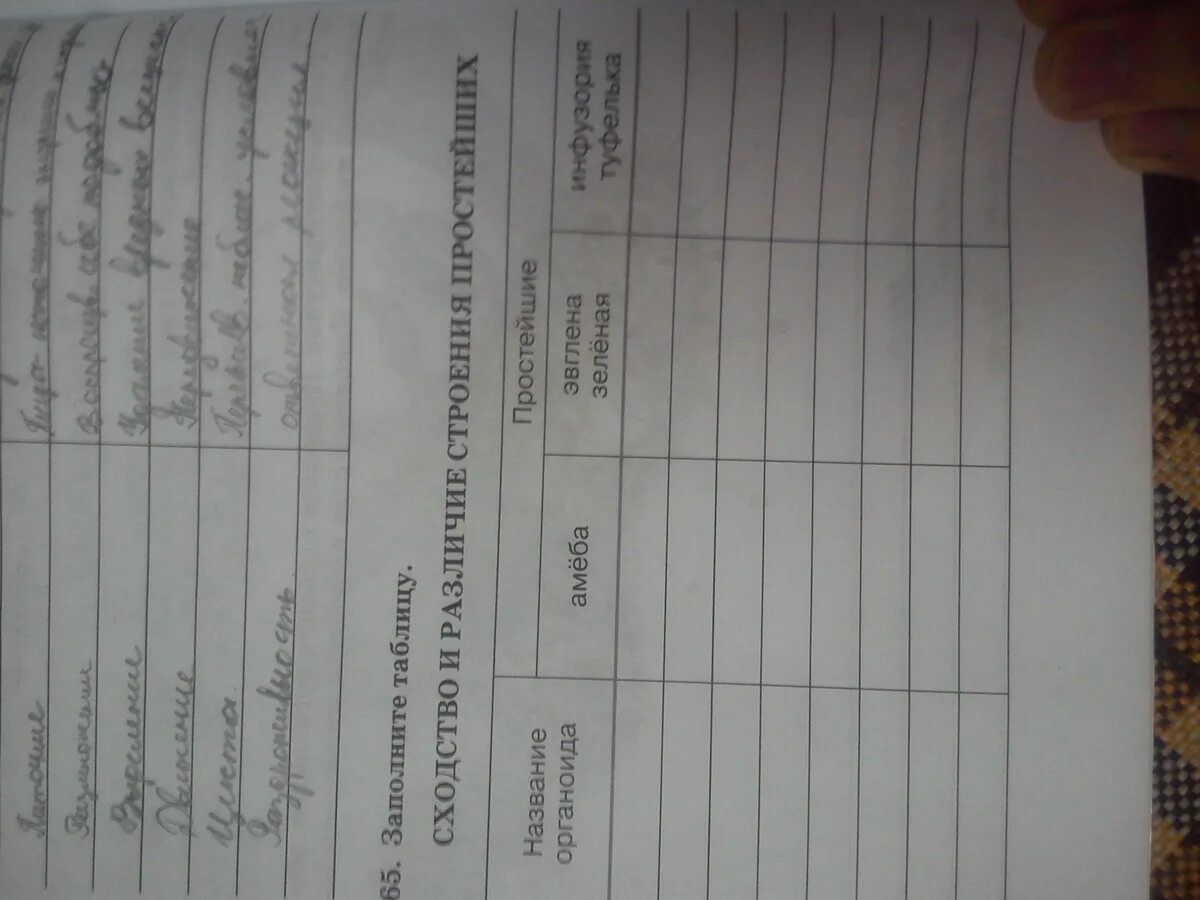 Питание
Размножение Воспроизв. себе подобных
Выделение Удаление вредных веществ
Движение Передвижение
Циста Переж. неблаг. условия
Раздражимость
65. Заполните таблицу.
СХОДСТВО И РАЗЛИЧИЕ СТРОЕНИЯ ПРОСТЕЙШИХ
Название органоида
Простейшие
амёба
эвглена зелёная
инфузория туфелька